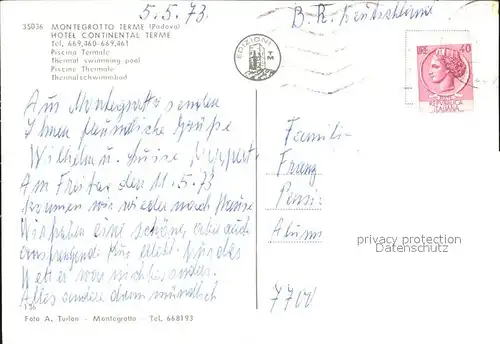 5.5.73
B.R. Deutschland
35036 MONTEGROTTO TERME (Padova)
HOTEL CONTINENTAL TERME
Tel. 669.460-669.461
Piscina Termale
Thermal swimming pool
Piscine Thermale
Thermalschwimmbad
EDIZIONI T M
LIRE 40
REPUBBLICA
ITALIANA
Aus Montegrotto senden
Ihnen freundliche Grüße
Wilhelm u. Luise
Am Freitag den 11.5.73
kommen wir wieder nach Hause
Wir haben eine schöne, aber auch
anstrengende Kur
Wetter war nicht besonders.
Alles andere dann mündlich
Familie
Franz
7700
privacy protection
Datenschutz
136
Foto A. Turlon - Montegrotto - Tel. 668193